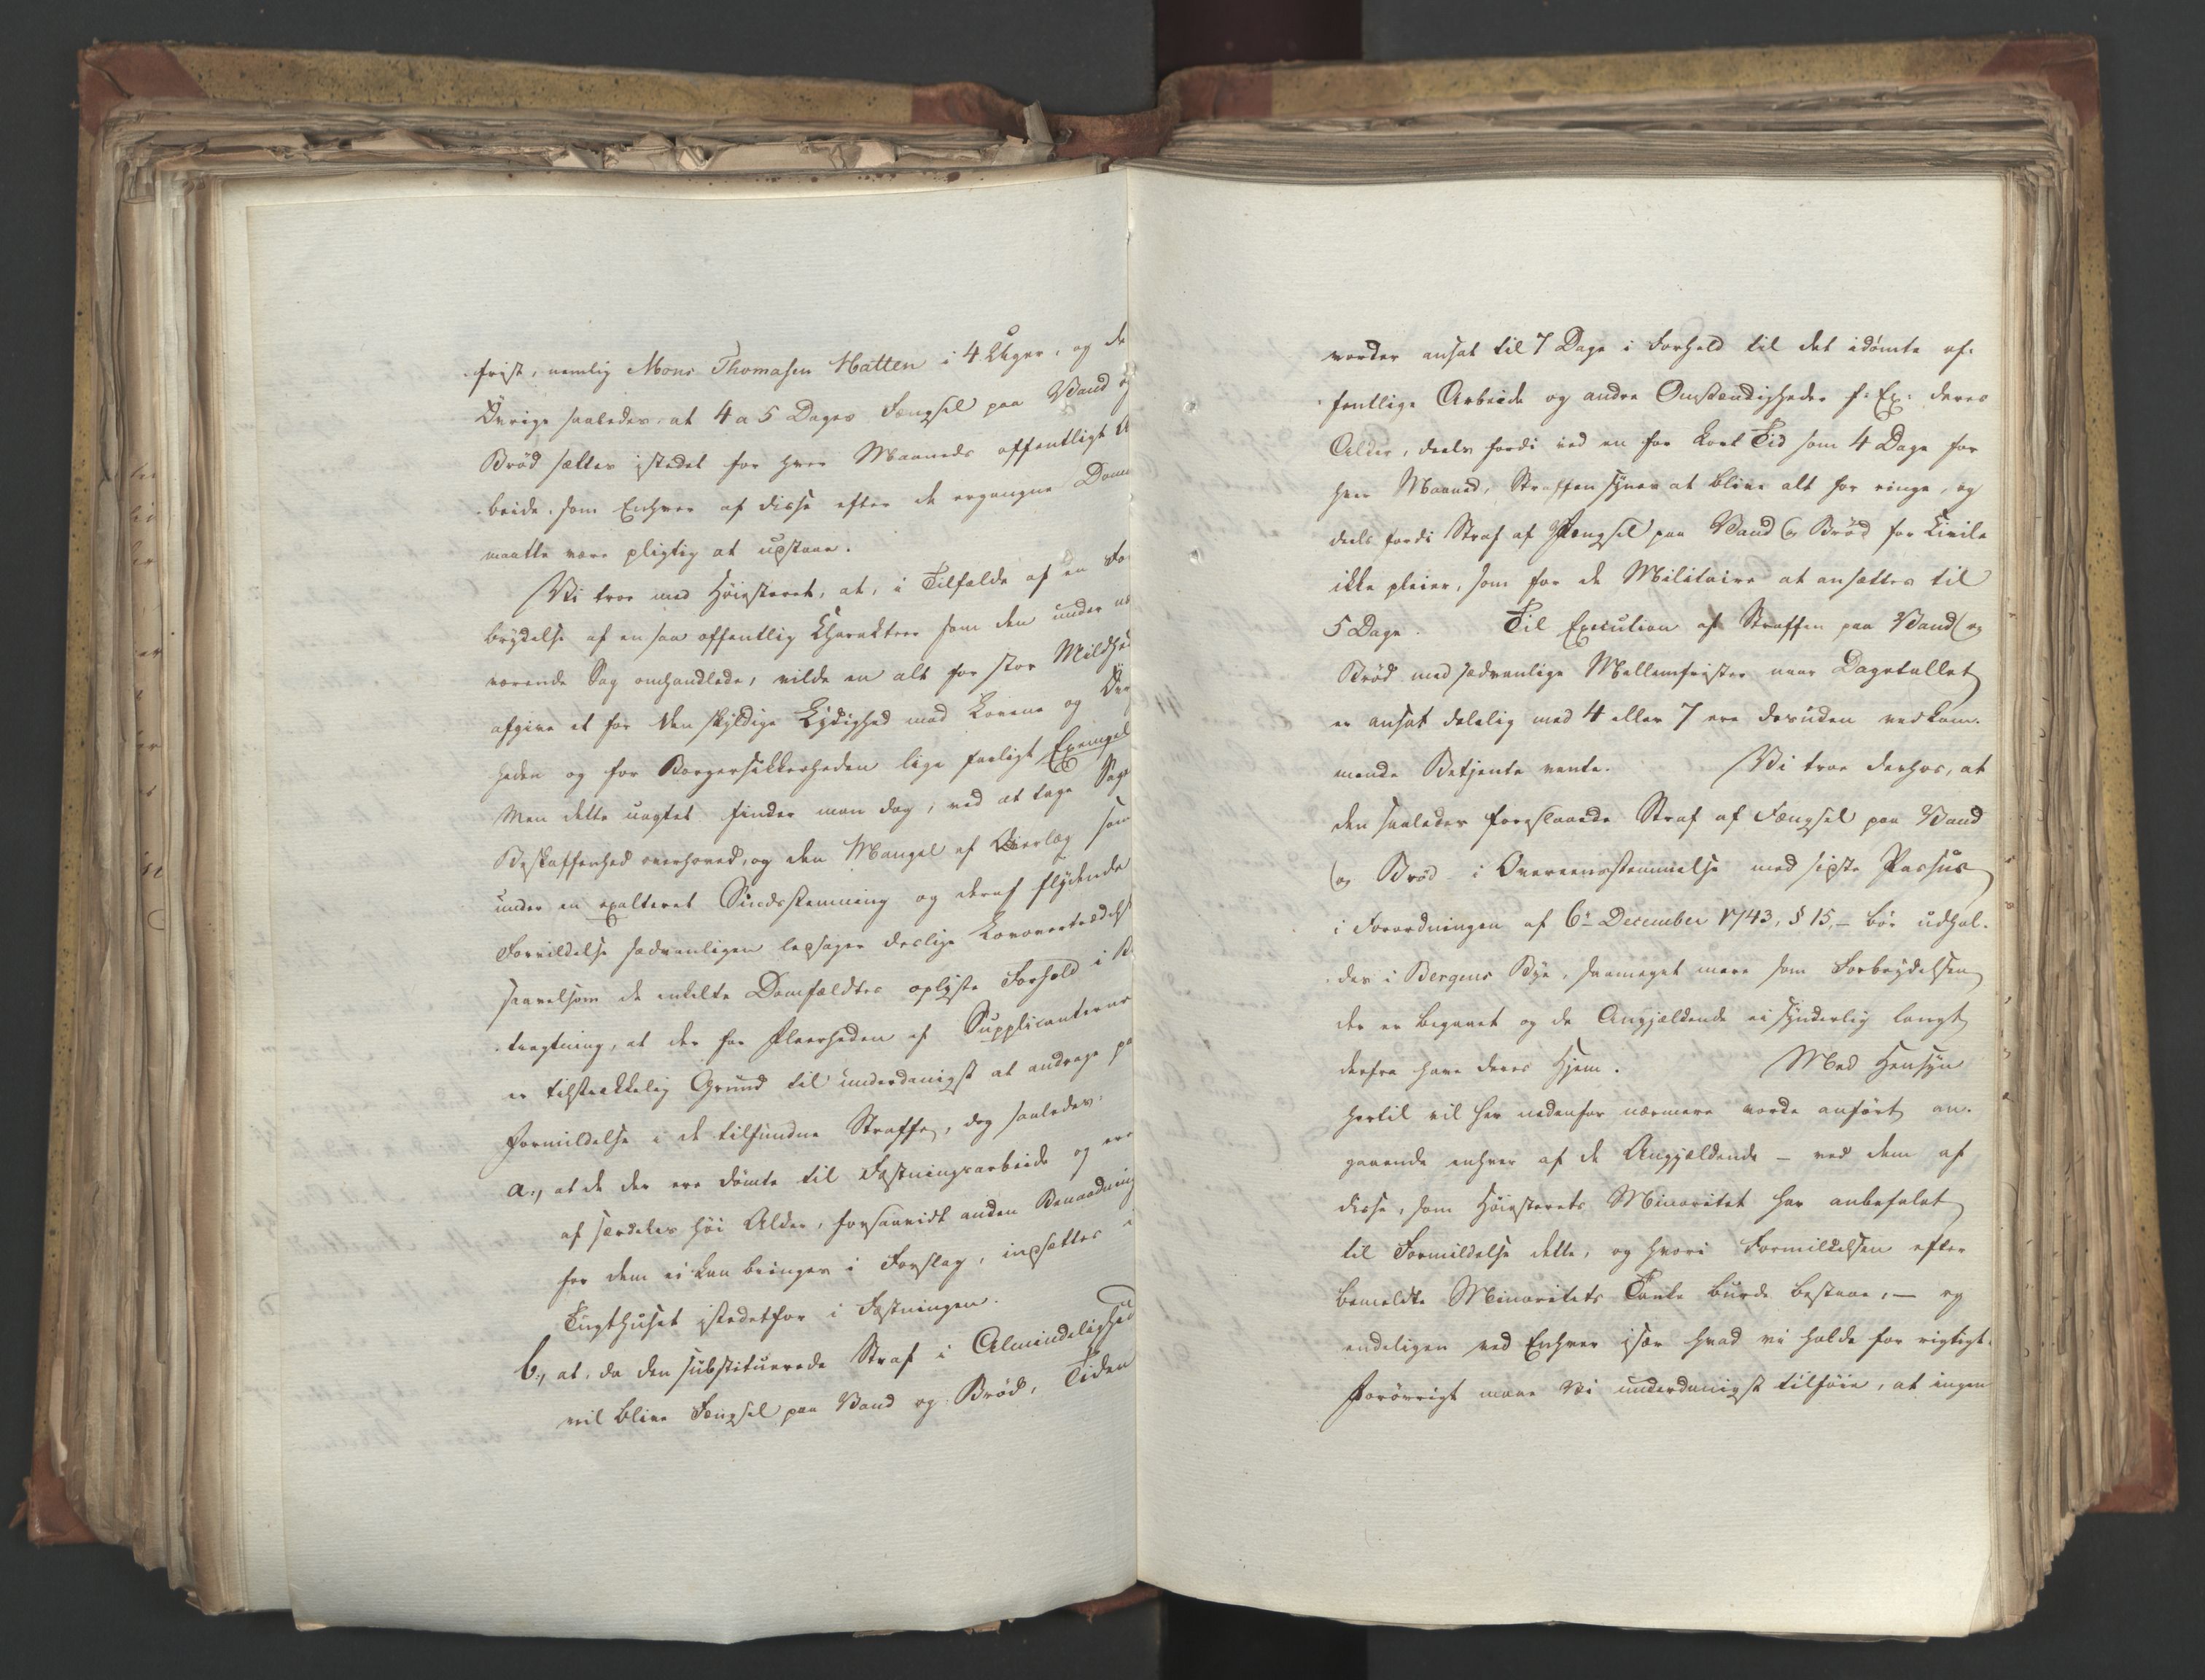 frist, nemlig Mons Thomasen Hatten i 4 Uger, og de
Øvrige saaledes at 4 a 5 Dages Fængsel paa Vand og
Brød sættes istedet for hver Maaneds offentligt Ar
beide, som Enhver af disse efter de ergangne Domme
maatte være pligtig at udstaae.
Vi troe med Høiesteret, at, i Tilfælde af en For
brydelse af en saa offentlig Charakteer som den under næ
værende Sag omhandlede, vilde en alt for stor Mildhed
afgive et for den skyldige Lydighed mod Lovene og Øvrig
heden og for Borgersikkerheden lige farligt Exempel
Men dette uagtet finder man dog, ved at tage Sagens
Beskaffenhed overhoved, og den Mangel af Overlæg som
under en exalteret Sindsstemning og deraf flydende
Forvildelse sædvanligen ledsager deslige Lovovertrædelser
saavelsom de enkelte Domfældtes oplyste Forhold i Be
tragtning, at der for Fleerheden af Supplicanterne
er tilstrækkelig Grund til underdanigst at andrage paa
Formildelse i de tilfundne Straffe, dog saaledes:
a., at de der ere dømte til Fæstningsarbeide og ere
af særdeles høi Alder, forsaavidt anden Benaadning
for dem ei kan bringes i Forslag, indsættes i
Tugthuset istedetfor i Fæstningen.
b., at, da den substituerede Straf i Almindelighed
vil blive Fængsel paa Vand og Brød, Tiden
vorder ansat til 7 Dage i Forhold til det idømte of-
fentlige Arbeide og andre Omstændigheder f. Ex. deres
Alder, deels fordi ved en for kort Tid som 4 Dage for
hver Maaned, Straffen synes at blive alt for ringe, og
deels fordi Straf af Fængsel paa Vand og Brød for Civile
ikke pleier, som for de Militaire at ansættes til
5 Dage. Til Execution af Straffen paa Vand og
Brød med sædvanlige Mellemfrister naar Dagetallet
er ansat delelig med 4 eller 7 ere desuden vedkom-
mende Betjente vante. Vi troe derhos, at
den saaledes foreslaaede Straf af Fængsel paa Vand
og Brød i Overeensstemmelse med sidste Passus
i Forordningen af 6te December 1743, § 15, – bør udhol-
des i Bergens Bye, saameget mere som Forbrydelsen
der er begaaet og de Angjældende ei synderlig langt
derfra have deres Hjem. Med Hensyn
hertil vil her nedenfor nærmere vorde anført an-
gaaende enhver af de Angjældende – ved dem af
disse, som Høiesterets Minoritet har anbefalet
til Formildelse dette, og hvori Formildelsen efter
bemeldte Minoritets Tanke burde bestaae, – og
endeligen ved Enhver især hvad vi holde for rigtigt.
Forøvrigt maae Vi underdanigst tilføie, at ingen